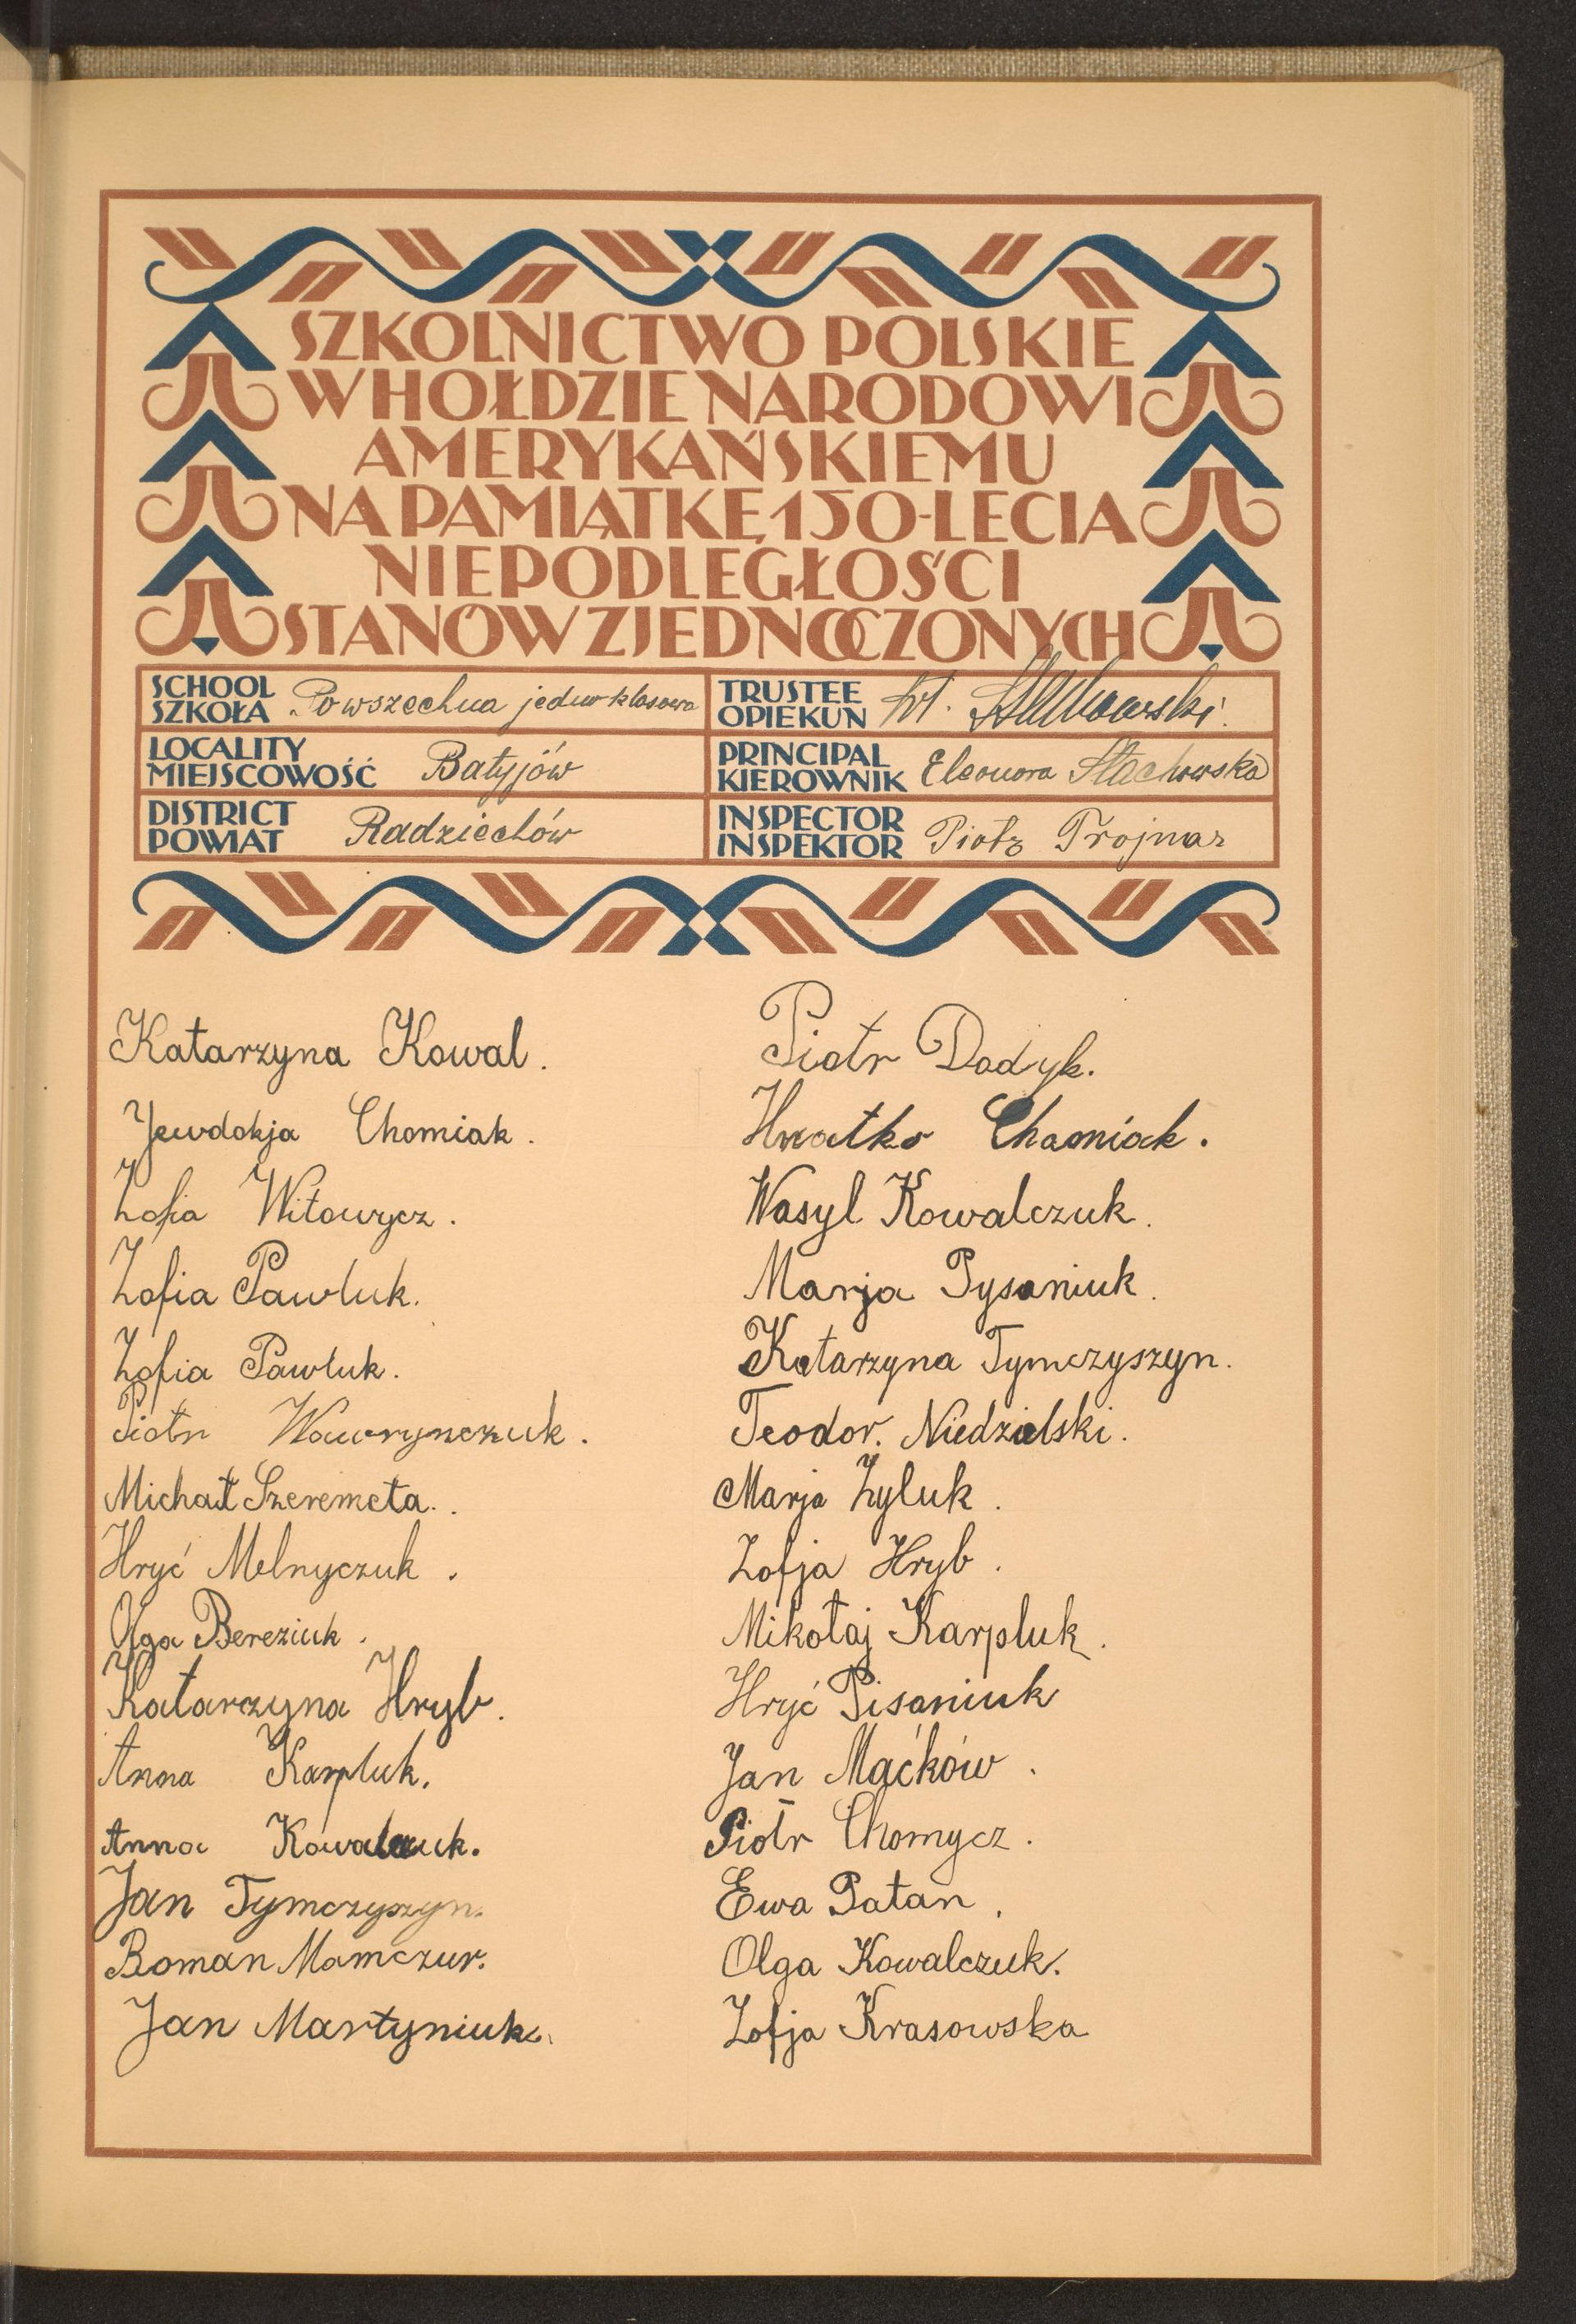 SZKOLNICTWO POLSKIE
W HOŁDZIE NARODOWI
AMERYKAŃSKIEMU
NA PAMIĄTKĘ 150-LECIA
NIEPODLEGŁOŚCI
STANÓW ZJEDNOCZONYCH
SCHOOL
SZKOŁA
Powszechna jednoklasowa
LOCALITY
MIEJSCOWOŚĆ
Batyjów
DISTRICT
POWIAT
Radziechów
TRUSTEE
OPIEKUN
Wł. Stachowski
PRINCIPAL
KIEROWNIK
Eleonora Stachowska
INSPECTOR
INSPEKTOR
Piotr Trojnar
Katarzyna Kowal.
Jewdokja Chomiak.
Zofia Witowycz.
Zofia Pawluk.
Zofia Pawluk.
Piotr Wawrynczuk.
Michał Szeremeta.
Hryć Melnyczuk.
Olga Bereziuk.
Katarzyna Hryb.
Anna Karpluk.
Anna Kowalczuk.
Jan Tymczyszyn.
Roman Mamczur.
Jan Martyniuk.
Piotr Dadyk.
Hnatko Chamiak.
Wasyl Kowalczuk.
Marja Pysaniuk.
Katarzyna Tymczyszyn.
Teodor. Niedzielski.
Marja Zyluk.
Zofja Hryb.
Mikołaj Karpluk.
Hryć Pisaniuk
Jan Maćków.
Piotr Chomycz.
Ewa Patan.
Olga Kowalczuk.
Zofja Krasowska